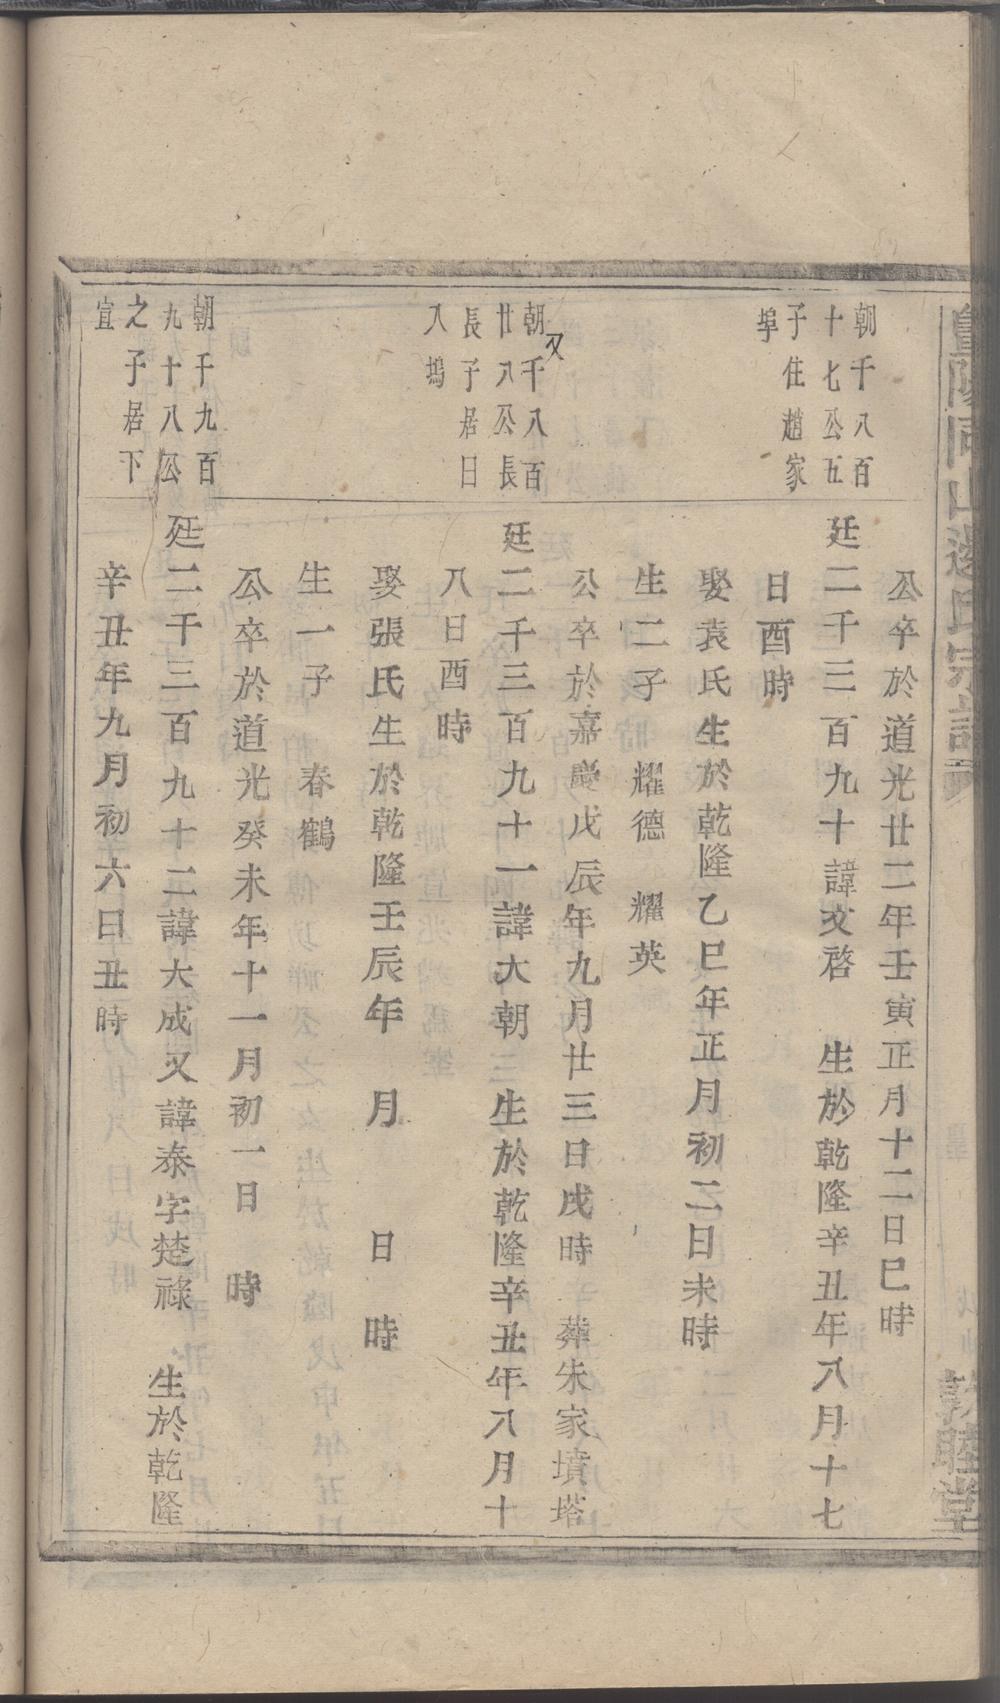 暨陽同山邊氏宗譜
敦睦堂
公卒於道光廿二年壬寅正月十二日巳時
朝千八百
十七公五
子住趙家
埠
廷二千三百九十諱文啓 生於乾隆辛丑年八月十七
日酉時
娶袁氏生於乾隆乙巳年正月初二日未時
生二子 耀德 耀英
公卒於嘉慶戊辰年九月廿三日戌時 葬朱家墳塔
朝千八百
又
廿八公長
長子居日
入塢
廷二千三百九十一諱大朝 生於乾隆辛丑年八月十
八日酉時
娶張氏生於乾隆壬辰年 月 日 時
生一子 春鶴
公卒於道光癸未年十一月初一日 時
朝千九百
九十八公
之子居下
宣
廷二千三百九十二諱大成又諱泰字楚祿 生於乾隆
辛丑年九月初六日丑時